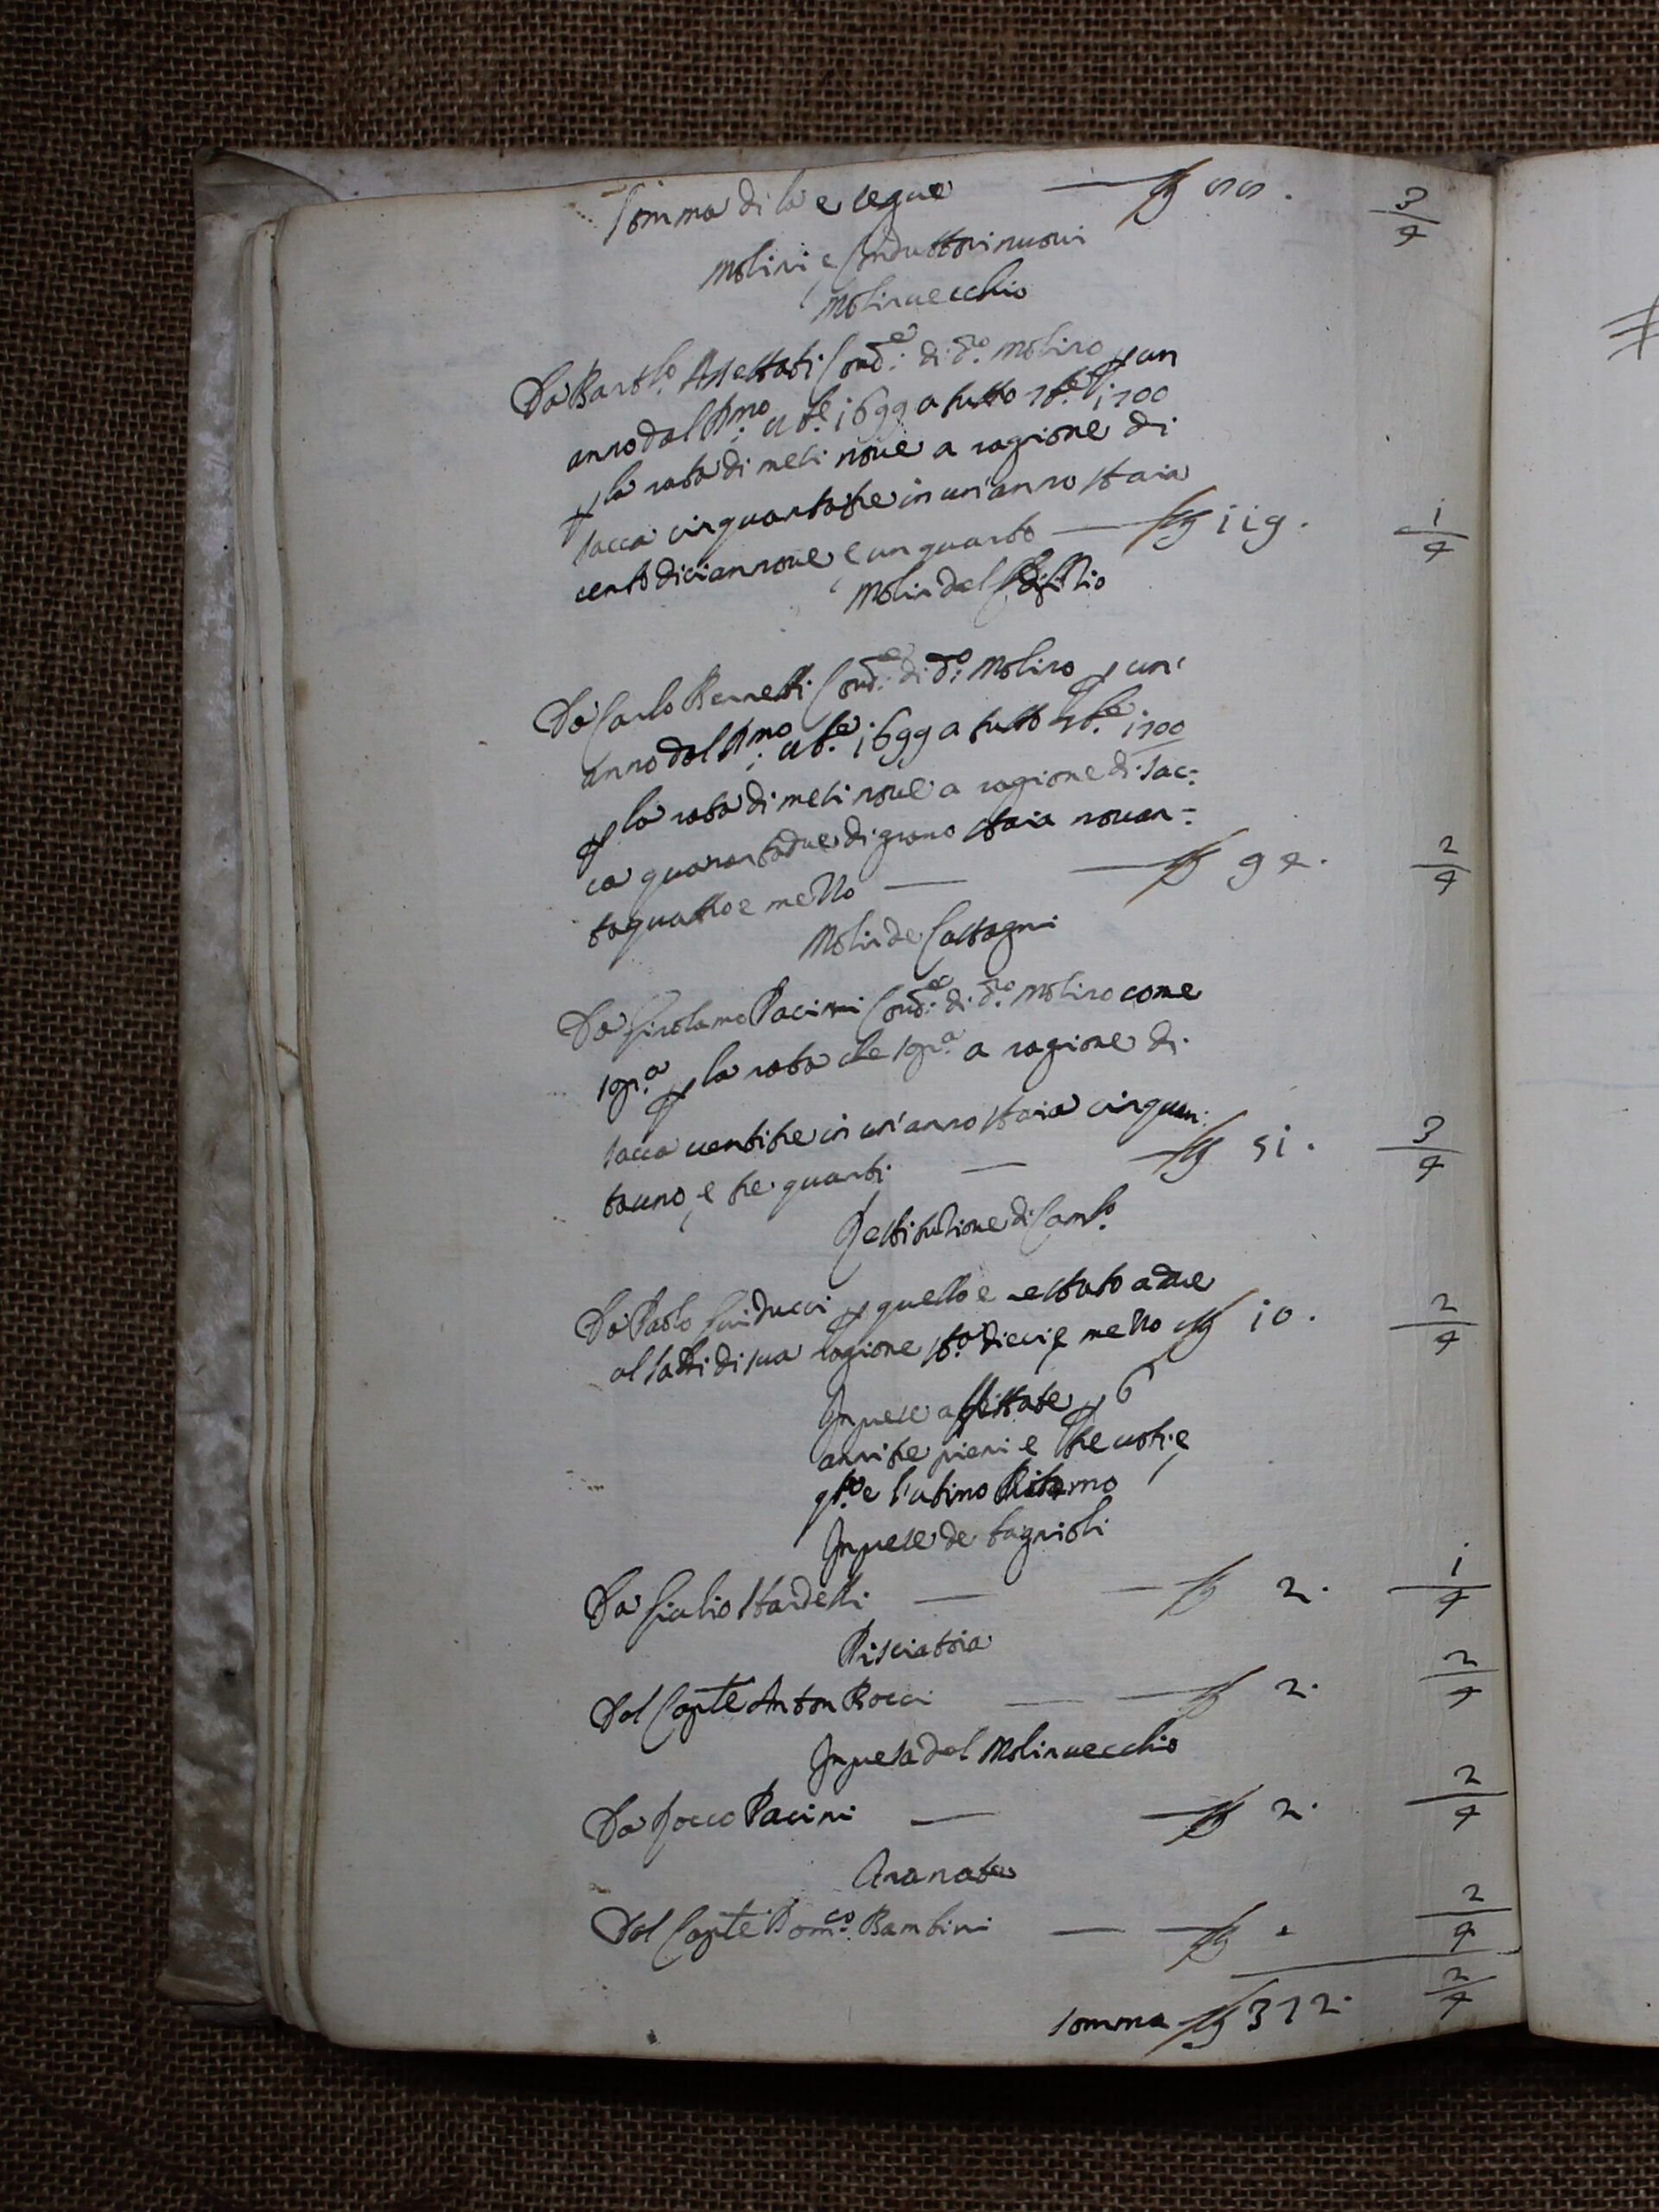 Somma di là e segue — st 88. 3/4
Molini, e Conduttori nuovi
Molin vecchio
Da Bart.º Assettati Cond.e di d.º Molino p un
anno dal P.mo 9b.e 1699 a tutto 8b.e 1700
p la rata di mesi nove a ragione di
sacca cinquantatre in un'anno staia
cento diciannove, e un quarto — st 119. 1/4
Molin del Edifitio
Da Carlo Benetti Cond.e di d.º Molino p un'
anno dal P.mo 9b.e 1699 a tutto 8b.e 1700
p la rata di mesi nove a ragione di sac=
ca quarantadue di grano staia novan=
taquattro e mezzo — st 94. 2/4
Molin de Castagni
Da Girolamo Pacini Cond.e di d.º Molino come
sop.a p la rata che sop.a a ragione di
sacca ventitre in un'anno staia cinquan=
tauno, e tre quarti — st 51. 3/4
Restitutione di Cam.º
Da Paolo Guiducci p quello e restato a due
al saldi di sua ragione sta dieci, e mezzo st 10. 2/4
Imprese affittate p 6
anni tre pieni e tre voti, e
q.to e l'utimo Ritorno
Imprese de Cagnioli
Da Giulio Stardelli — st 2. 1/4
Pisciatoia
Dal Cap.te Anton Bocci — st 2. 2/4
Impresa del Molin vecchio
Da Rocco Pacini — st 2. 2/4
Granata
Dal Cap.te Dom.co Bambini — st . 2/4
somma st 372. 2/4